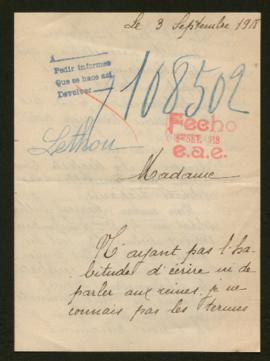 Le 3 Septembre 1918
A
Pedir informes
Que se hace así
Devolver
108502
Fecho
SEBE. 918
e.a.e.
Lethou
Madame
N'ayant pas l'ha-
bitude d'écrire ni de
parler aux reines, je ne
connais pas les termes